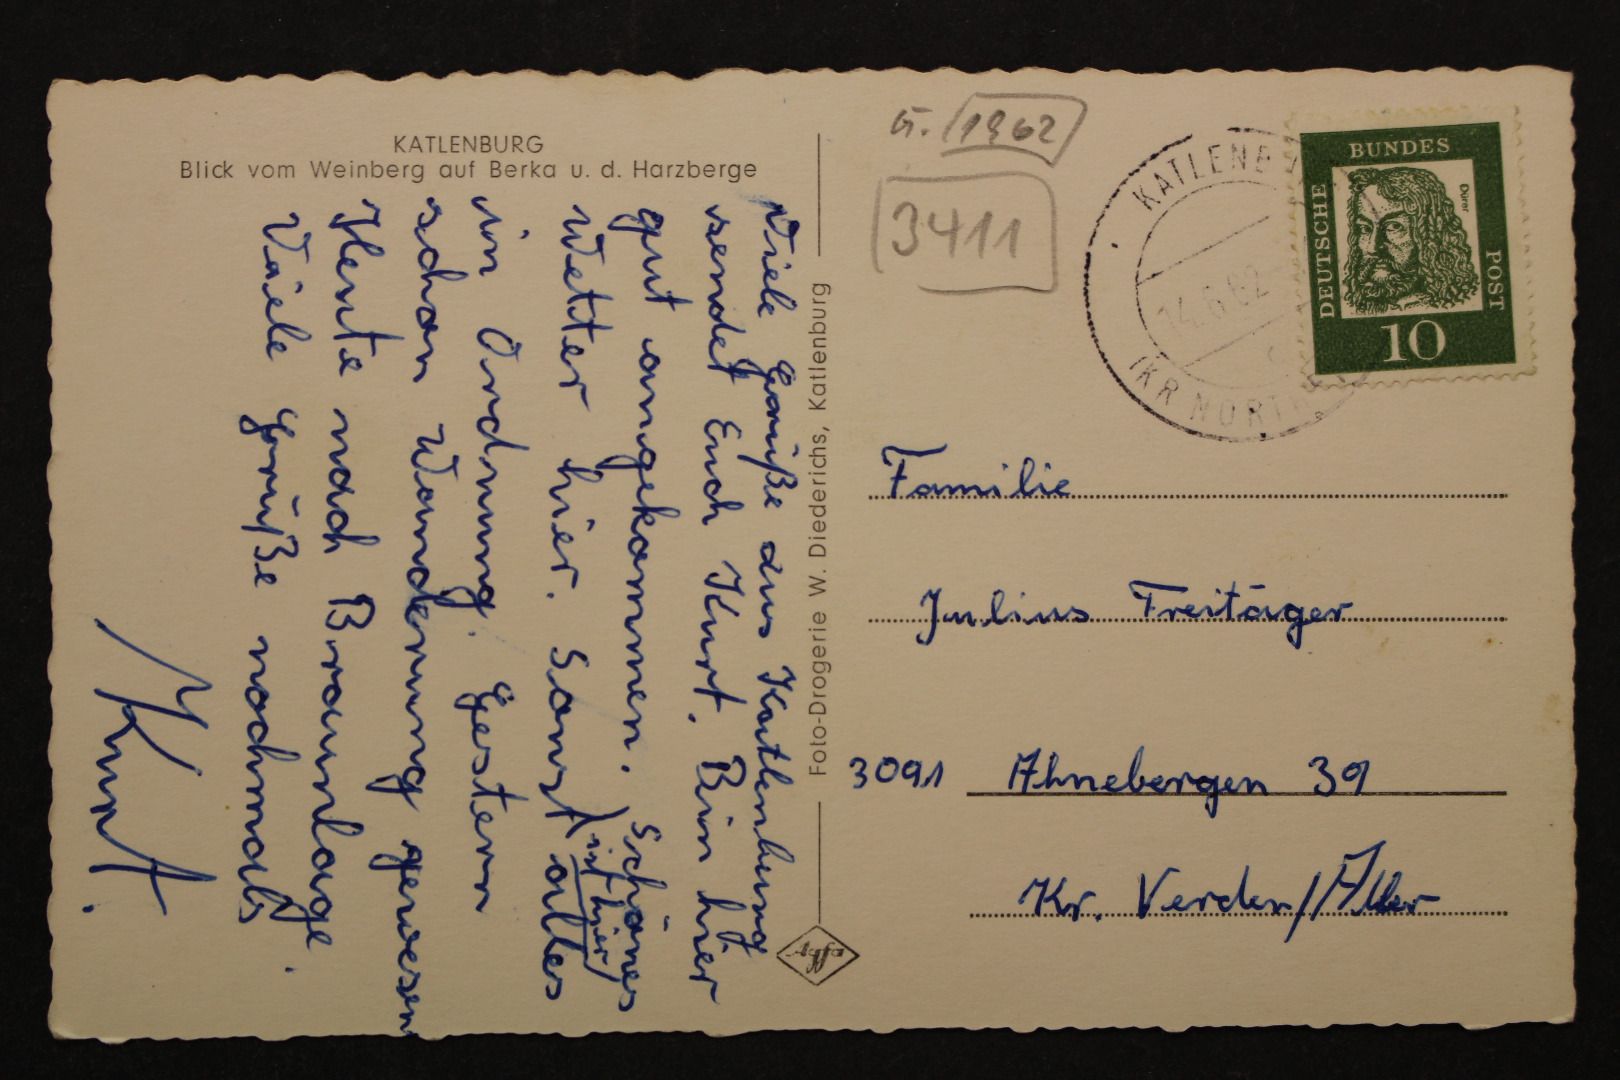 KATLENBURG
Blick vom Weinberg auf Berka u. d. Harzberge
Viele Grüße aus Katlenburg
sendet Euch Kurt. Bin hier
gut angekommen. Schönes
Wetter hier. Sonst (ist hier) alles
in Ordnung. Gestern
schon Wanderung gewesen
Heute nach Braunlage.
Viele Grüße nochmals
Kurt.
Foto-Drogerie W. Diederichs, Katlenburg
Agfa
1962
3411
KATLENB
14.6.62
(KR NORT
DEUTSCHE BUNDES POST
Dürer
10
Familie
Julius Freitäger
3091 Ahnebergen 39
Kr. Verden/Aller